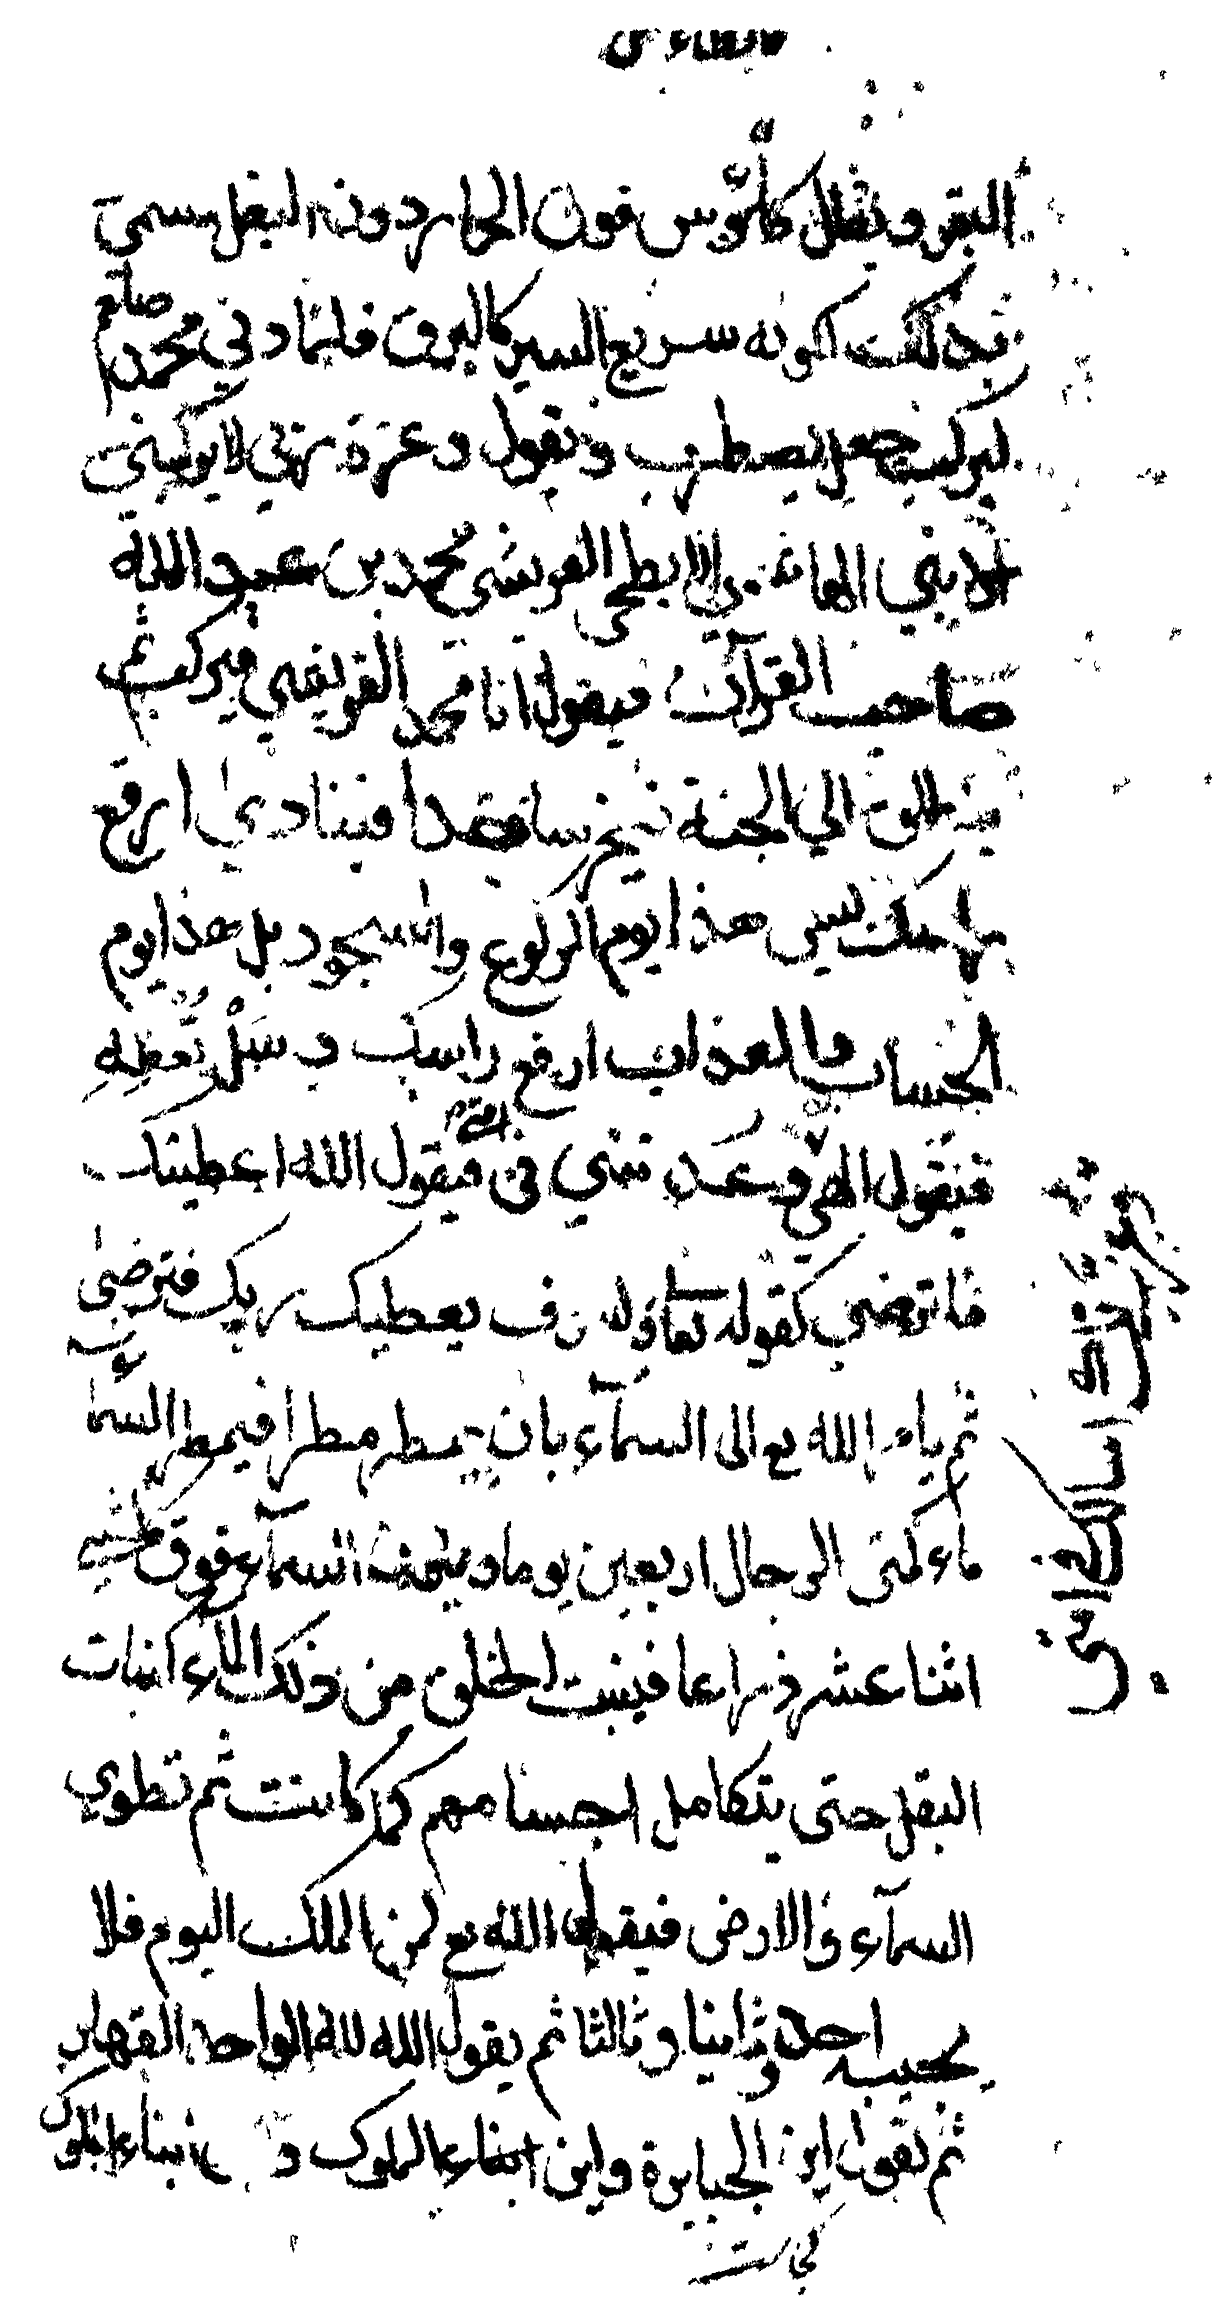 البقر ويقال كأرؤس فوق الحمار دون البغل سمي
بذلك لكونه سريع السير كالبرق فلما دني محمد صلعم
ليركب جعل يضطرب ويقول وعزة ربي لا يركبني
الا بني الهاشمي الابطحي القريشي محمد بن عبد الله
صاحب القرآن فيقول انا محمد القريشي فيركب ثم
ينطلق الي الجنة فيخر ساجدا فينادي ارفع
راسك ليس هذا يوم الركوع والسجود بل هذا يوم
الحساب والعذاب ارفع راسك وسَلْ تُعطِهِ
فيقول الهي وعدتني في امتي فيقول الله اعطيتك
ما ترضي كقوله تعا ولسوف يعطيك ربك فترضى
ثم يامر الله تع الى السمآء بان يمطر مطرا فيمطر السمآ
ماء كمني الرجال اربعين يوما و السمآء فوق
اثنا عشر ذراعا فينبت الخلق من ذلك الماء كنبات
البقل حتى يتكامل اجسامهم كما كانت ثم تطوي
السمآء والارض فيقول الله تع لمن الملك اليوم فلا
يجيبه احد وثانيا وثالثا ثم يقول الله لله الواحد القهار
ثم يقول اين الجبابرة واين ابناء الملوك و ابناء الملوك